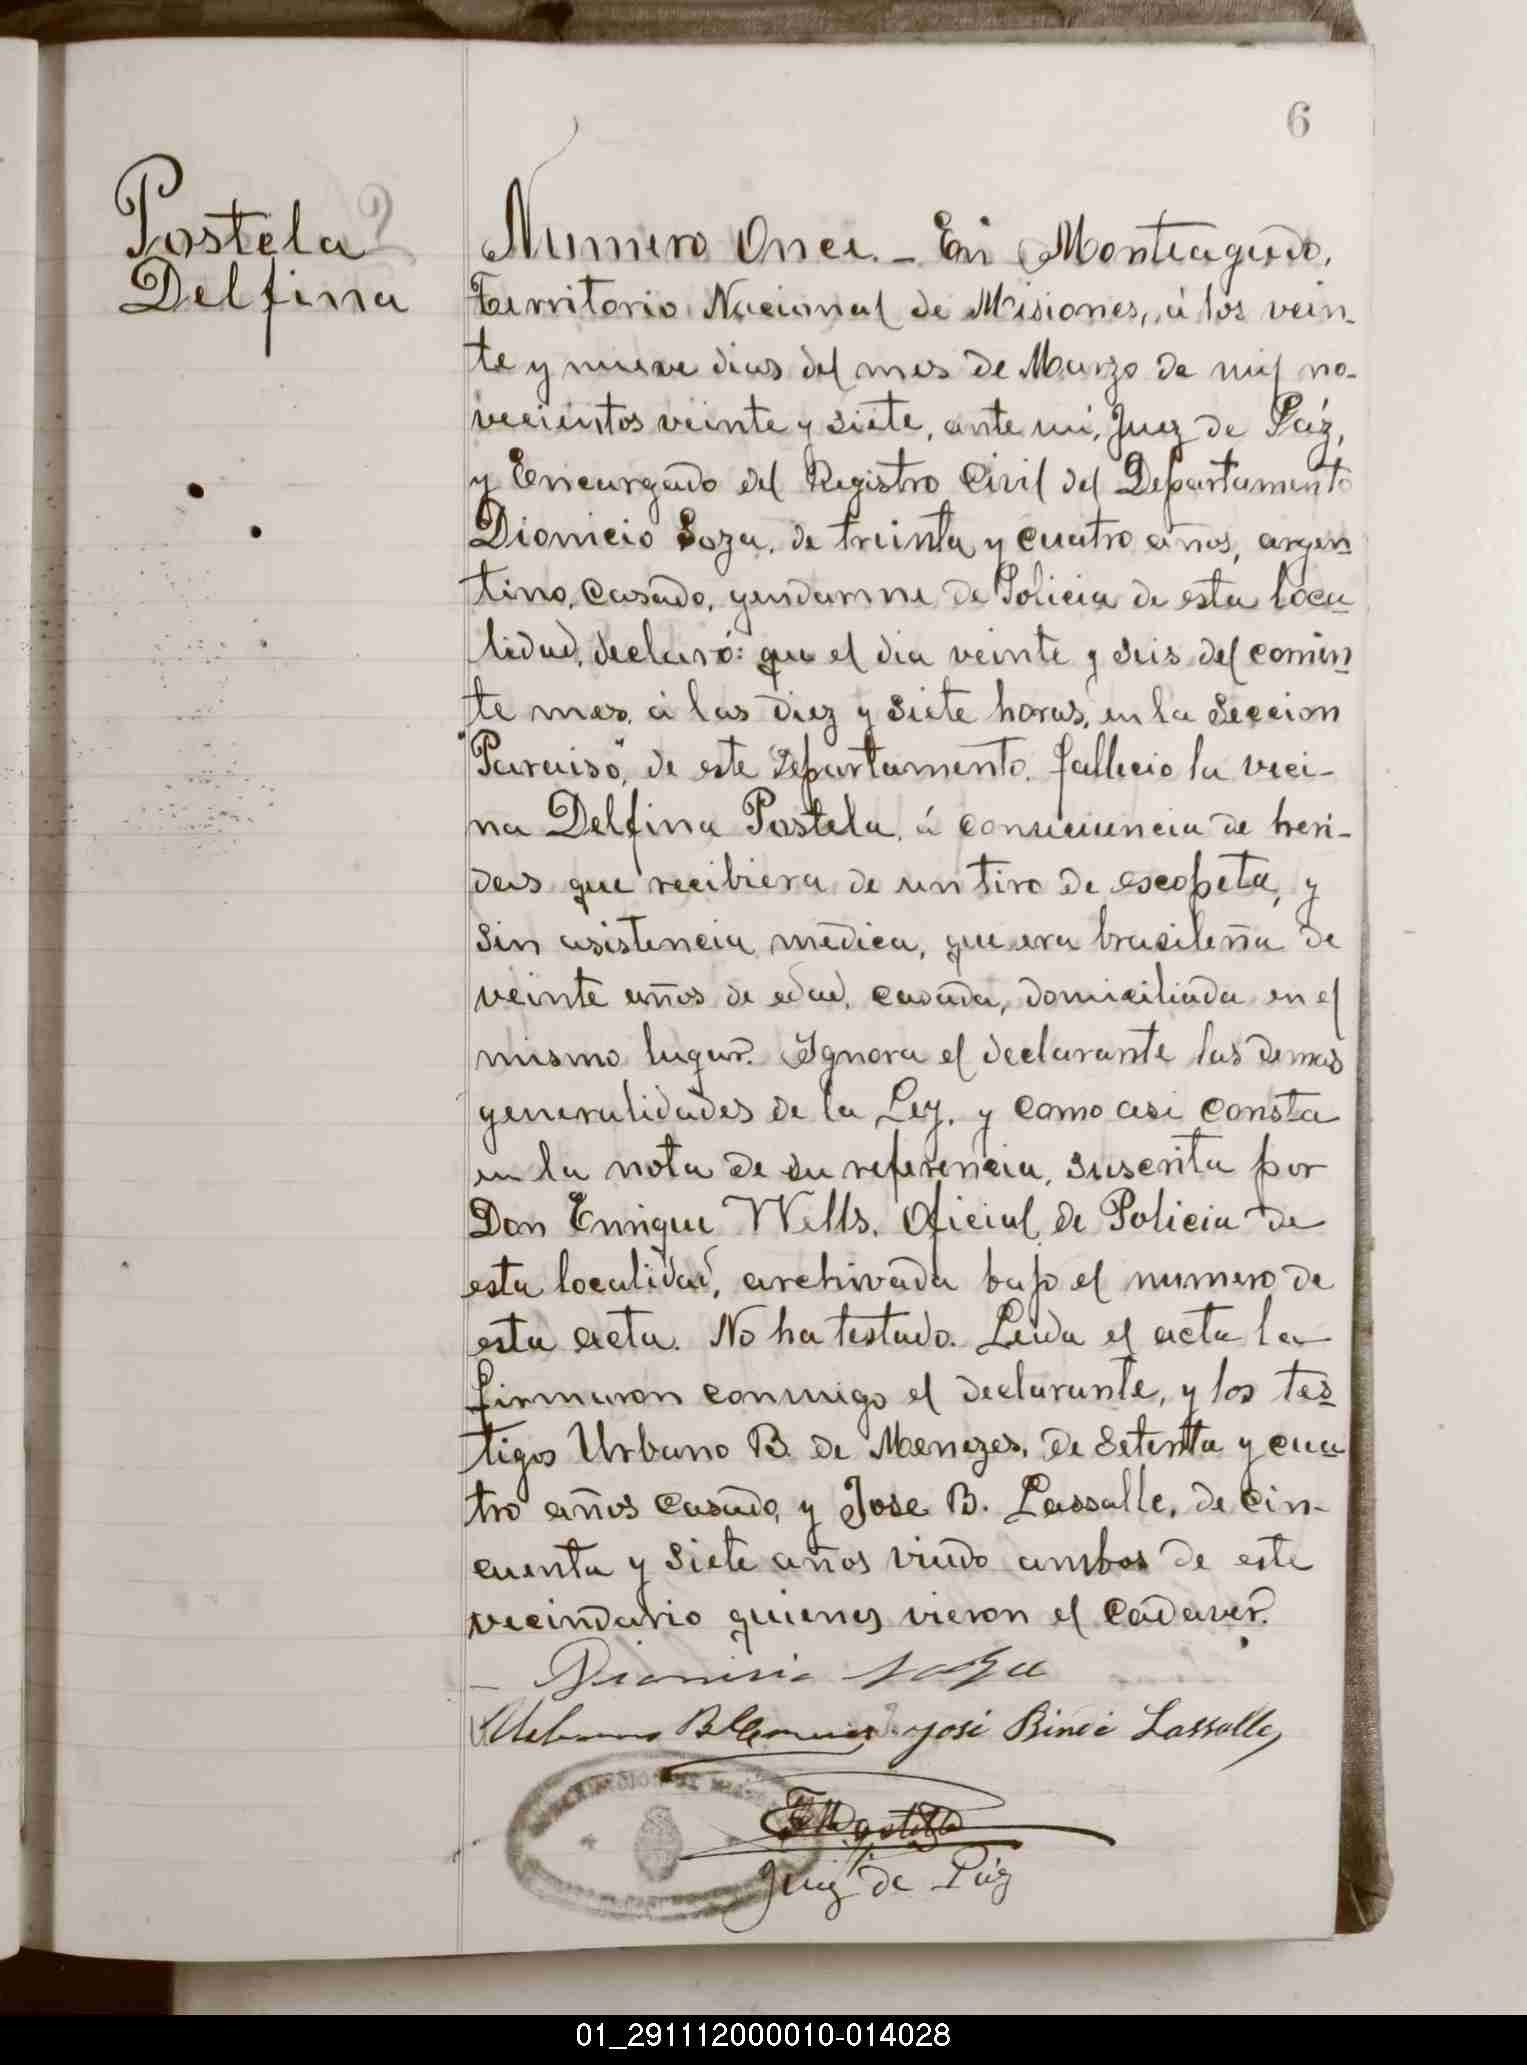 6
Postela
Delfina
Numero Once. - En Monteagudo,
Territorio Nacional de Misiones, á los vein-
te y nueve dias del mes de Marzo de mil no-
vecientos veinte y siete, ante mi, Juez de Páz,
y Encargado del Registro Civil del Departamento
Dionicio Soza, de treinta y cuatro años, argen-
tino, casado, gendarme de Policia de esta loca-
lidad, declaró: que el dia veinte y seis del corrien-
te mes, á las diez y siete horas, en la Seccion
"Paraiso", de este Departamento, fallecio la veci-
na Delfina Postela, á de heri-
das que recibiera de un tiro de escopeta, y
sin asistencia medica, que era brasileña de
veinte años de edad, casada, domiciliada en el
mismo lugar. Ignora el declarante las demas
generalidades de la Ley, y como asi consta
en la nota de su referencia, suscrita por
Don Enrique Wells, Oficial de Policia de
esta localidad, archivada bajo el numero de
esta acta. No ha testado. Leida el acta la
firmaron conmigo el declarante, y los tes-
tigos Urbano B. de Menezes, de setenta y cua-
tro años casado, y Jose B. Lassalle, de cin-
cuenta y siete años viudo ambos de este
vecindario quienes vieron el cadaver.
Dionisio Soza
José Lassalle
Juez de Páz
01_291112000010-014028